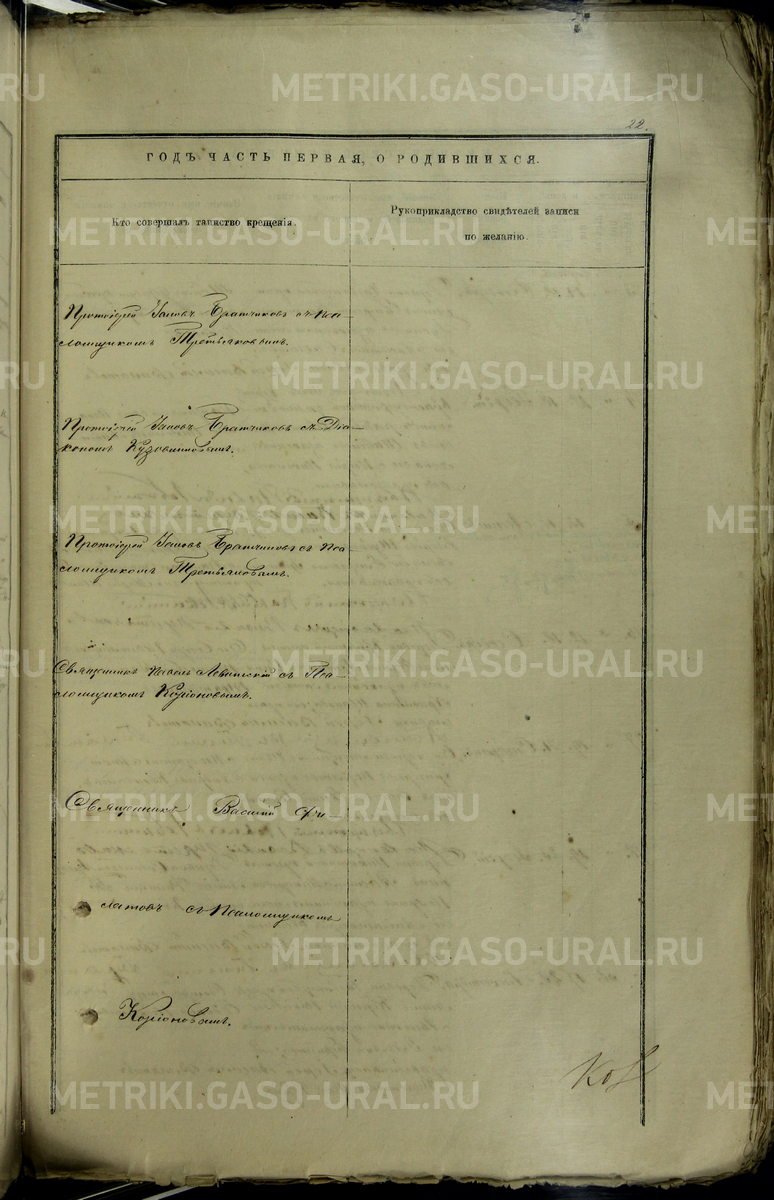 22.
ГОДЪ ЧАСТЬ ПЕРВАЯ, О РОДИВШИХСЯ.
Кто совершалъ таинство крещенія.
Рукоприкладство свидѣтелей записи
по желанію.
Протоіерей Іаковъ Братчиковъ съ Пса-
ломщикомъ Третьяковымъ.
Протоіерей Іаковъ Братчиковъ съ Діа-
кономъ Кузовниковымъ.
Протоіерей Іаковъ Братчиковъ съ Пса-
ломщикомъ Третьяковымъ.
Священникъ Павелъ Левитскій съ Пса-
ломщикомъ Коріоновымъ.
Священникъ Василій Фи-
латовъ съ Псаломщикомъ
Коріоновымъ.
METRIKI.GASO-URAL.RU